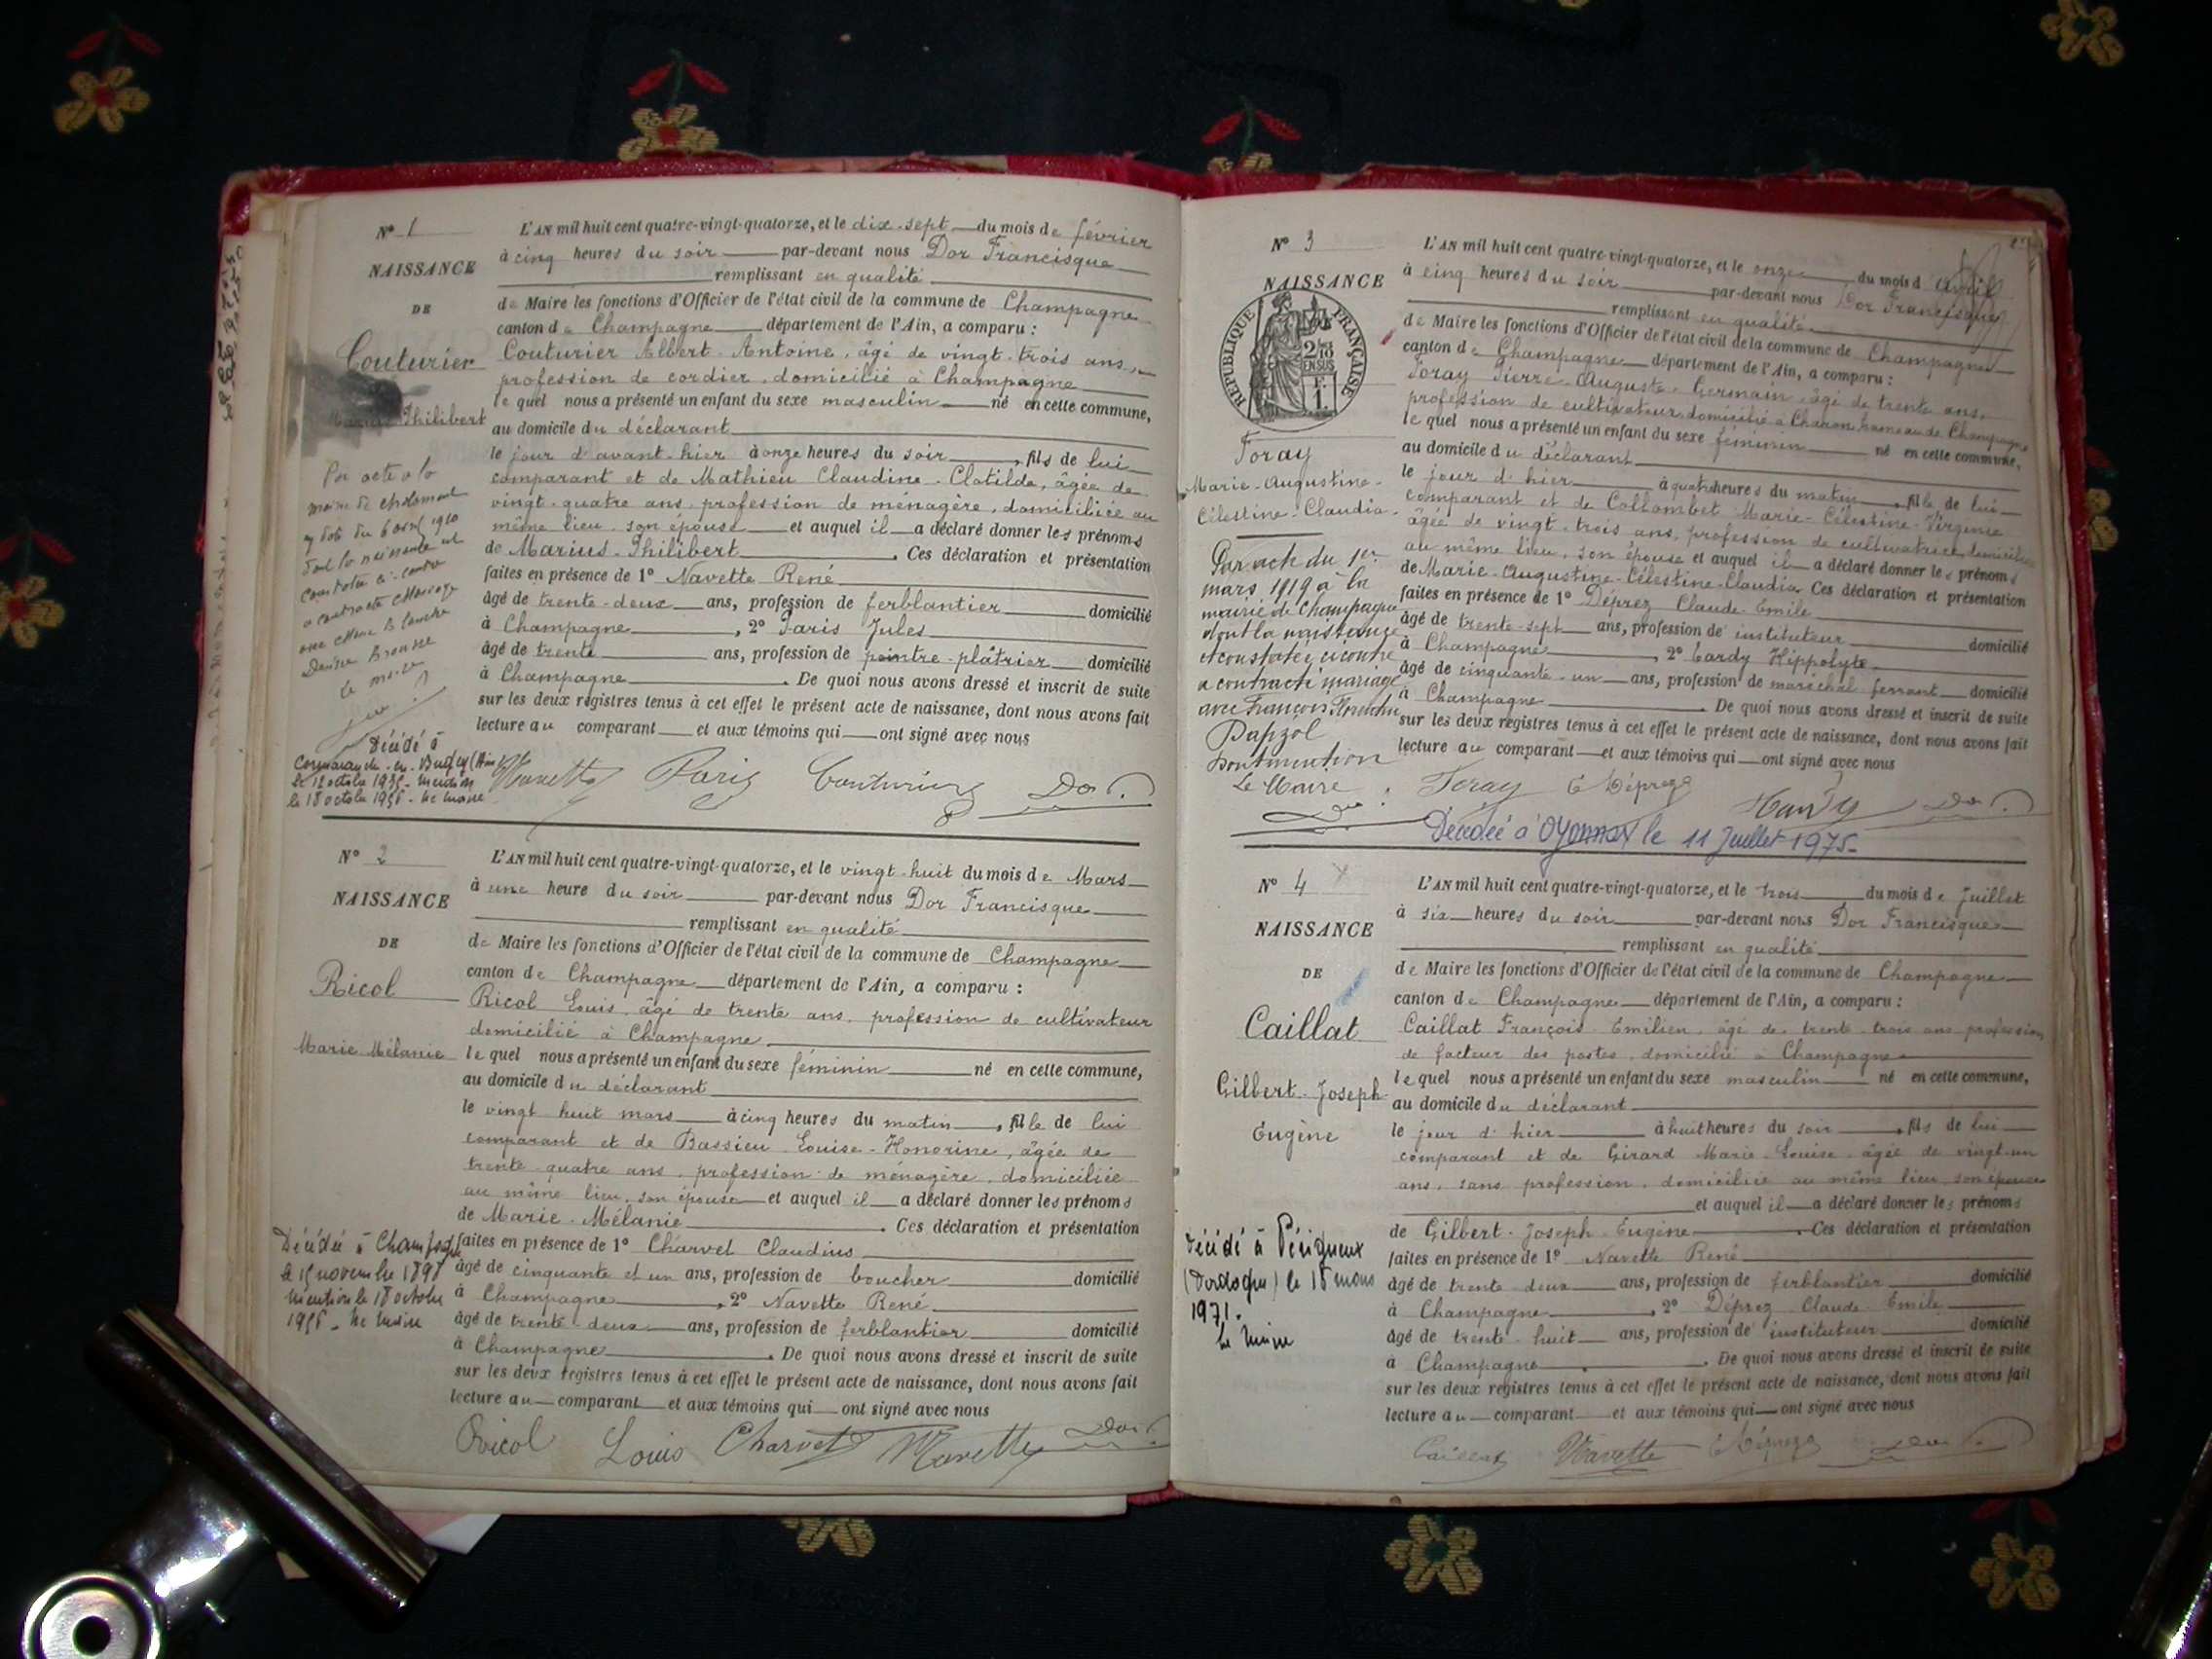 N° 1
NAISSANCE
DE
Couturier
Philibert
L'AN mil huit cent quatre-vingt-quatorze, et le dix-sept du mois de février
à cinq heures du soir par-devant nous Dor Francisque
remplissant en qualité
de Maire les fonctions d'Officier de l'état civil de la commune de Champagne
canton de Champagne département de l'Ain, a comparu :
Couturier Albert-Antoine, âgé de vingt-trois ans,
profession de cordier, domicilié à Champagne
lequel nous a présenté un enfant du sexe masculin né en cette commune,
au domicile du déclarant
le jour d'avant-hier à onze heures du soir, fils de lui
comparant et de Mathieu Claudine-Clotilde, âgée de
vingt-quatre ans, profession de ménagère, domiciliée au
même lieu, son épouse et auquel il a déclaré donner les prénoms
de Marius-Philibert. Ces déclaration et présentation
faites en présence de 1° Navette René
âgé de trente-deux ans, profession de ferblantier domicilié
à Champagne, 2° Paris Jules
âgé de trente ans, profession de peintre-plâtrier domicilié
à Champagne. De quoi nous avons dressé et inscrit de suite
sur les deux registres tenus à cet effet le présent acte de naissance, dont nous avons fait
lecture au comparant et aux témoins qui ont signé avec nous
Navette Paris Couturier Dor
Décédé à
N° 2
NAISSANCE
DE
Ricol
Marie Mélanie
L'AN mil huit cent quatre-vingt-quatorze, et le vingt-huit du mois de Mars
à une heure du soir par-devant nous Dor Francisque
remplissant en qualité
de Maire les fonctions d'Officier de l'état civil de la commune de Champagne
canton de Champagne département de l'Ain, a comparu :
Ricol Louis, âgé de trente ans, profession de cultivateur
domicilié à Champagne
lequel nous a présenté un enfant du sexe féminin né en cette commune,
au domicile du déclarant
le vingt huit mars à cinq heures du matin, fille de lui
comparant et de Bassieu Louise-Honorine, âgée de
trente-quatre ans, profession de ménagère, domiciliée
au même lieu, son épouse et auquel il a déclaré donner les prénoms
de Marie-Mélanie. Ces déclaration et présentation
faites en présence de 1° Charvet Claudius
âgé de cinquante et un ans, profession de boucher domicilié
à Champagne, 2° Navette René
âgé de trente-deux ans, profession de ferblantier domicilié
à Champagne. De quoi nous avons dressé et inscrit de suite
sur les deux registres tenus à cet effet le présent acte de naissance, dont nous avons fait
lecture au comparant et aux témoins qui ont signé avec nous
Ricol Louis Charvet Navette Dor
Décédée à Champagne
N° 3
NAISSANCE
RÉPUBLIQUE FRANÇAISE
EN SUS
Foray
Marie-Augustine-
Célestine-Claudia
Par acte du 1er
mars 1919 à la
mairie de Champagne
dont la naissance
est constatée ci contre
a contracté mariage
avec François
Le Maire
L'AN mil huit cent quatre-vingt-quatorze, et le onze du mois d'avril
à cinq heures du soir par-devant nous Dor Francisque
remplissant en qualité
de Maire les fonctions d'Officier de l'état civil de la commune de Champagne
canton de Champagne département de l'Ain, a comparu :
Foray Pierre-Auguste-Germain, âgé de trente ans,
profession de cultivateur, domicilié à Charon, hameau de Champagne
lequel nous a présenté un enfant du sexe féminin né en cette commune,
au domicile du déclarant
le jour d'hier à quatre heures du matin, fille de lui
comparant et de Collombet Marie-Célestine-Virginie
âgée de vingt-trois ans, profession de cultivatrice, domiciliée
au même lieu, son épouse et auquel il a déclaré donner les prénoms
de Marie-Augustine-Célestine-Claudia. Ces déclaration et présentation
faites en présence de 1° Déprez Claude-Emile
âgé de trente-sept ans, profession de instituteur domicilié
à Champagne, 2° Hippolyte
âgé de cinquante-un ans, profession de maréchal ferrant domicilié
à Champagne. De quoi nous avons dressé et inscrit de suite
sur les deux registres tenus à cet effet le présent acte de naissance, dont nous avons fait
lecture au comparant et aux témoins qui ont signé avec nous
Foray E Déprez Dor
Décédée à Oyonnax le 11 Juillet 1975
N° 4
NAISSANCE
DE
Caillat
Gilbert-Joseph
Eugène
L'AN mil huit cent quatre-vingt-quatorze, et le trois du mois de Juillet
à six heures du soir par-devant nous Dor Francisque
remplissant en qualité
de Maire les fonctions d'Officier de l'état civil de la commune de Champagne
canton de Champagne département de l'Ain, a comparu :
Caillat François-Emilien, âgé de trente-trois ans, profession
de facteur des postes, domicilié à Champagne
lequel nous a présenté un enfant du sexe masculin né en cette commune,
au domicile du déclarant
le jour d'hier à huit heures du soir, fils de lui
comparant et de Girard Marie-Louise, âgée de vingt-un
ans, sans profession, domiciliée au même lieu, son épouse
et auquel il a déclaré donner les prénoms
de Gilbert-Joseph-Eugène. Ces déclaration et présentation
faites en présence de 1° Navette René
âgé de trente-deux ans, profession de ferblantier domicilié
à Champagne, 2° Déprez Claude-Emile
âgé de trente-huit ans, profession de instituteur domicilié
à Champagne. De quoi nous avons dressé et inscrit de suite
sur les deux registres tenus à cet effet le présent acte de naissance, dont nous avons fait
lecture au comparant et aux témoins qui ont signé avec nous
Caillat Navette E Déprez Dor
Décédé à Périgueux
(Dordogne) le 18 mars
1971.
Le Maire